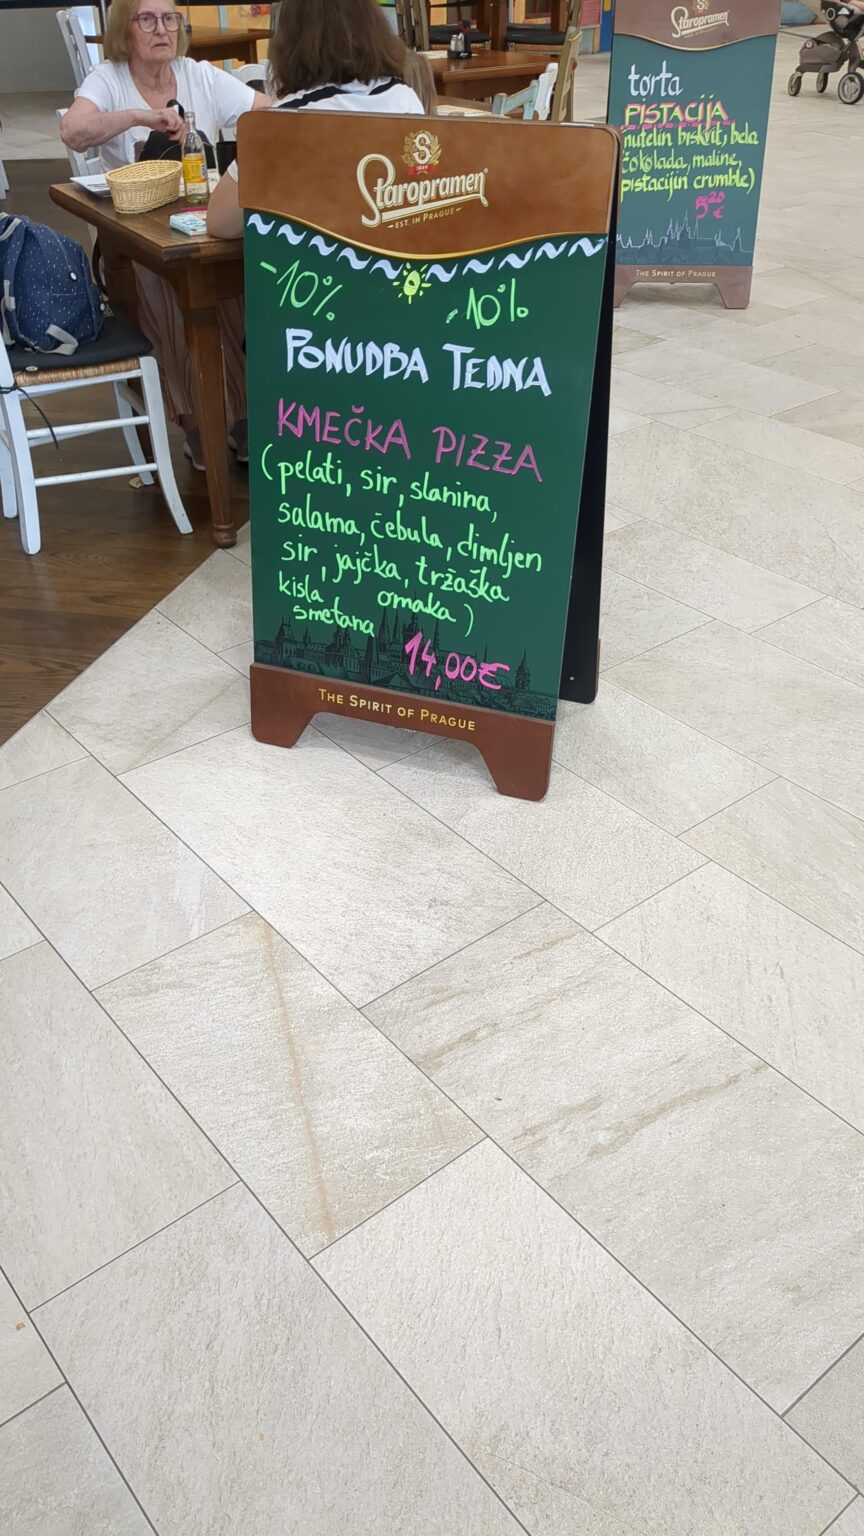 Staropramen
EST. IN PRAGUE
-10% -10%
PONUDBA TEDNA
KMEČKA PIZZA
(pelati, sir, slanina,
salama, čebula, dimljen
sir, jajčka, tržaška
kisla omaka)
smetana
14,00€
THE SPIRIT OF PRAGUE
Staropramen
torta
PISTACIJA
nutelin biskvit, bela
čokolada, maline,
pistacijin crumble)
520
€
THE SPIRIT OF PRAGUE